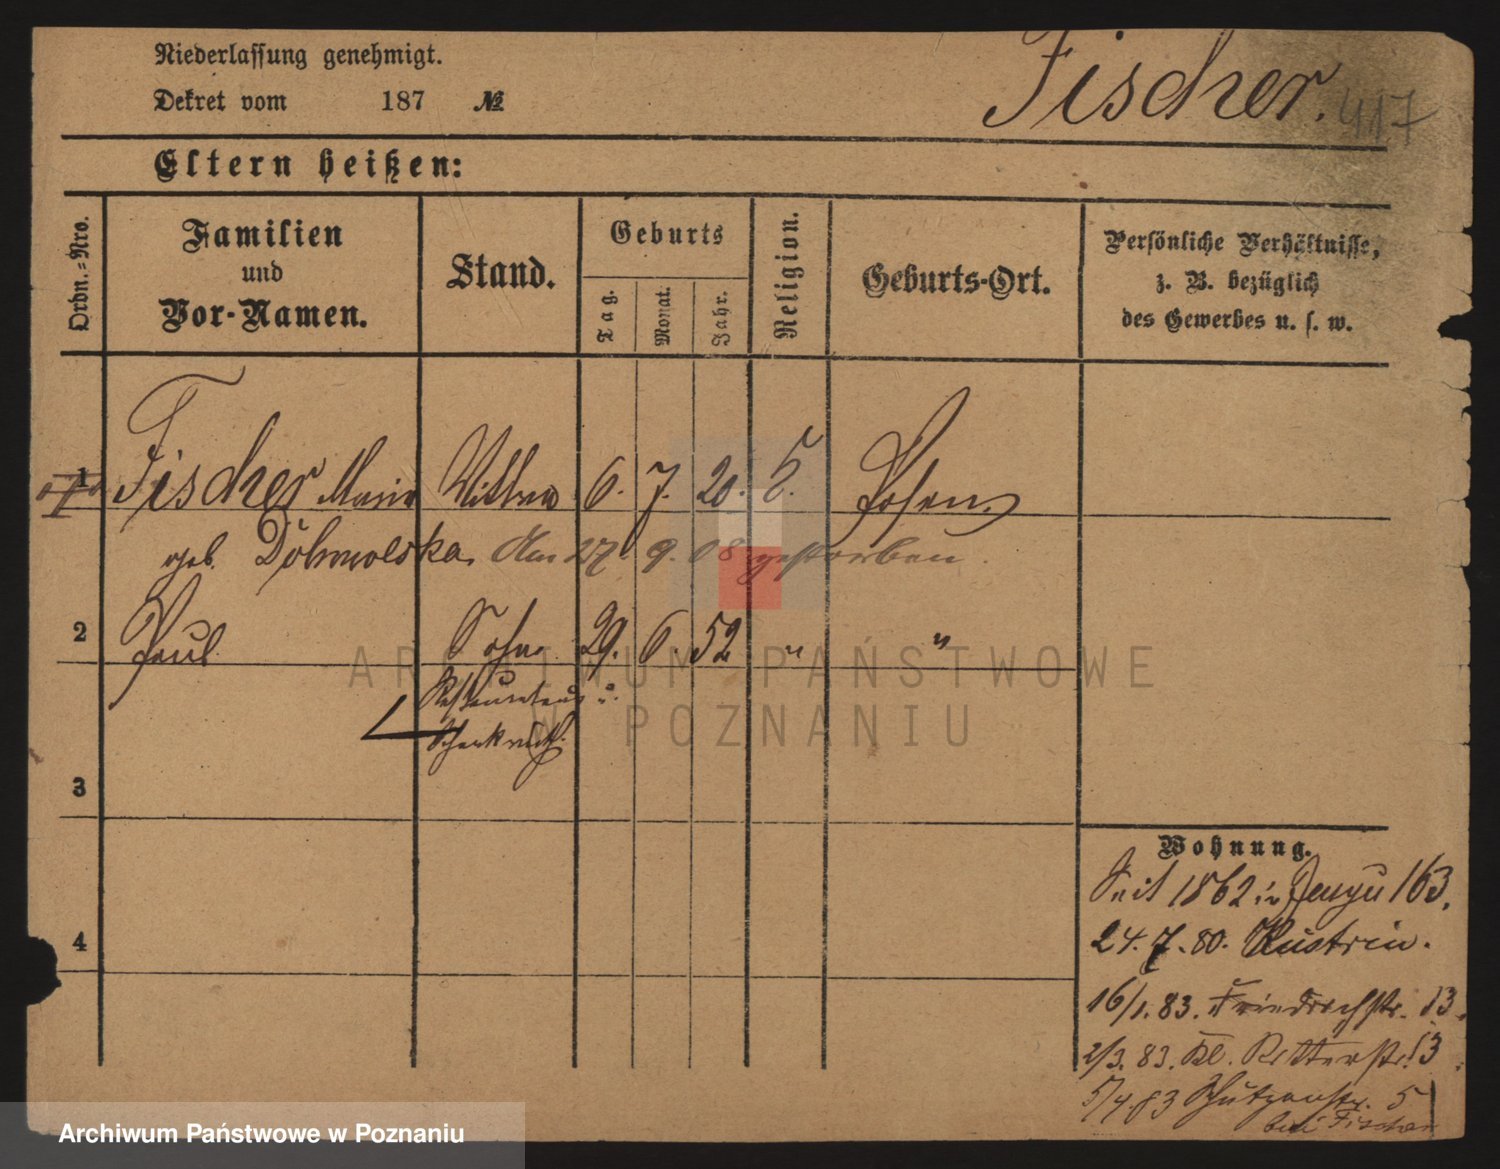 Niederlassung genehmigt.
Dekret vom 187 №
Fischer. 417
Eltern heißen:
Ordn.-Nro.
Familien
und
Vor-Namen.
Stand.
Geburts
Tag.
Monat.
Jahr.
Religion.
Geburts-Ort.
Persönliche Verhältnisse,
z. B. bezüglich
des Gewerbes u. s. w.
1 Fischer Marie Wittwe 6. 7. 20. Posen
geb. Dobrowolska. Am 27 9. 08 gestorben.
2 Paul Sohn 29. 6. 52 " "
Restaurateur u.
Schankwirth.
3
4
Wohnung.
Seit 1862 in 163.
24. 7. 80. Küstrin.
16/1. 83. Friedrichstr. 13.
2/3. 83. Kl. Ritterstr. 13
5/4 83 Schützenstr. 5
bei Fischer
ARCHIWUM PAŃSTWOWE
W POZNANIU
Archiwum Państwowe w Poznaniu